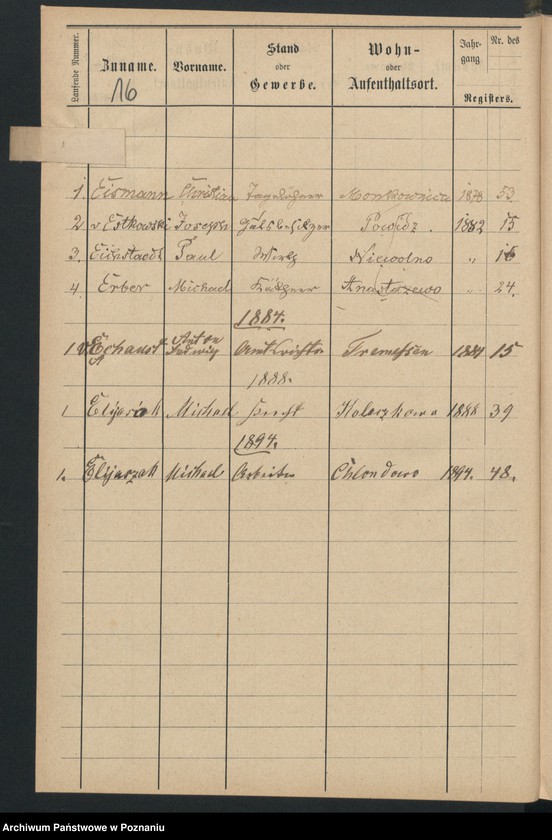 Laufende Nummer. Zuname. Vorname. Stand oder Gewerbe. Wohn- oder Aufenthaltsort. Jahrgang Nr. des Registers.
16
1 Eismann Christian 1878 53
2 v Estkowski Joseph Gutsbesitzer Powidz. 1882 15
3. Eichstaedt Paul Wirth " 16
4. Erber Michael Anastazewo " 24.
1884.
1 Anton Ludwig Amtsrichter Tremessen 1884 15
1888.
1 Michael Knecht 1888 39
1894.
1. Elijaszak Michael Arbeiter Chlondowo 1894. 48.
Archiwum Państwowe w Poznaniu